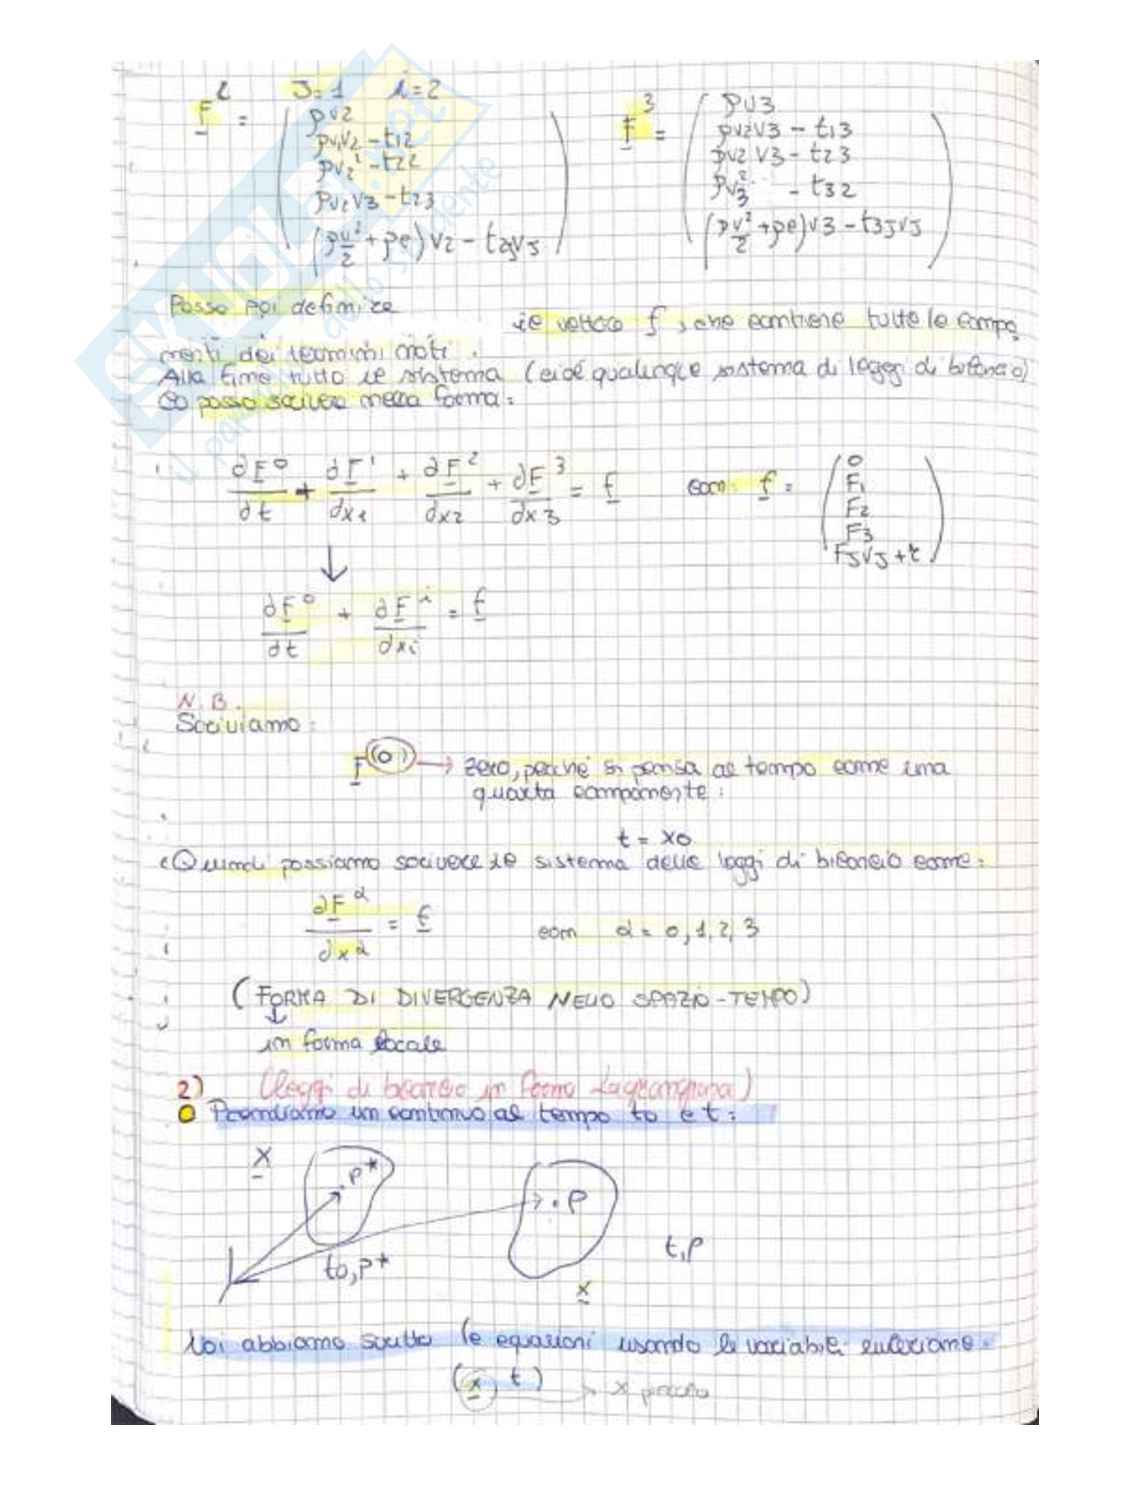 J=1 i=2
F² = ( ρv2
ρv1v2 - t12
ρv2² - t22
ρv2v3 - t23
(ρv²/2 + ρe) v2 - t2jvj )
F³ = ( ρv3
ρv2v3 - t13
ρv2v3 - t23
ρv3² - t32
(ρv²/2 + ρe)v3 - t3jvj )
Posso poi definire il vettore f, che contiene tutte le compo
nenti dei termini noti.
Alla fine tutto il sistema (cioè qualunque sistema di leggi di bilancio)
lo posso scrivere nella forma:
∂F⁰/∂t + ∂F¹/∂x1 + ∂F²/∂x2 + ∂F³/∂x3 = f con: f = ( 0
F1
F2
F3
FJVJ + r )
↓
∂F⁰/∂t + ∂Fⁱ/∂xi = f
N.B.
Scriviamo:
F(0) → zero, perché si pensa al tempo come una
quarta componente:
t = x0
Quindi possiamo scrivere il sistema delle leggi di bilancio come:
∂Fᵅ/∂xα = f con α = 0,1,2,3
(FORMA DI DIVERGENZA NELLO SPAZIO-TEMPO)
↓
in forma locale
2) (leggi di bilancio in forma Lagrangiana)
Prendiamo un continuo al tempo t0 e t:
X
P*
P
t0,P*
t,P
x
Noi abbiamo scritto le equazioni usando le variabili euleriane:
(x, t) → x piccolo
SKUOLA.net
il paradiso dello studente